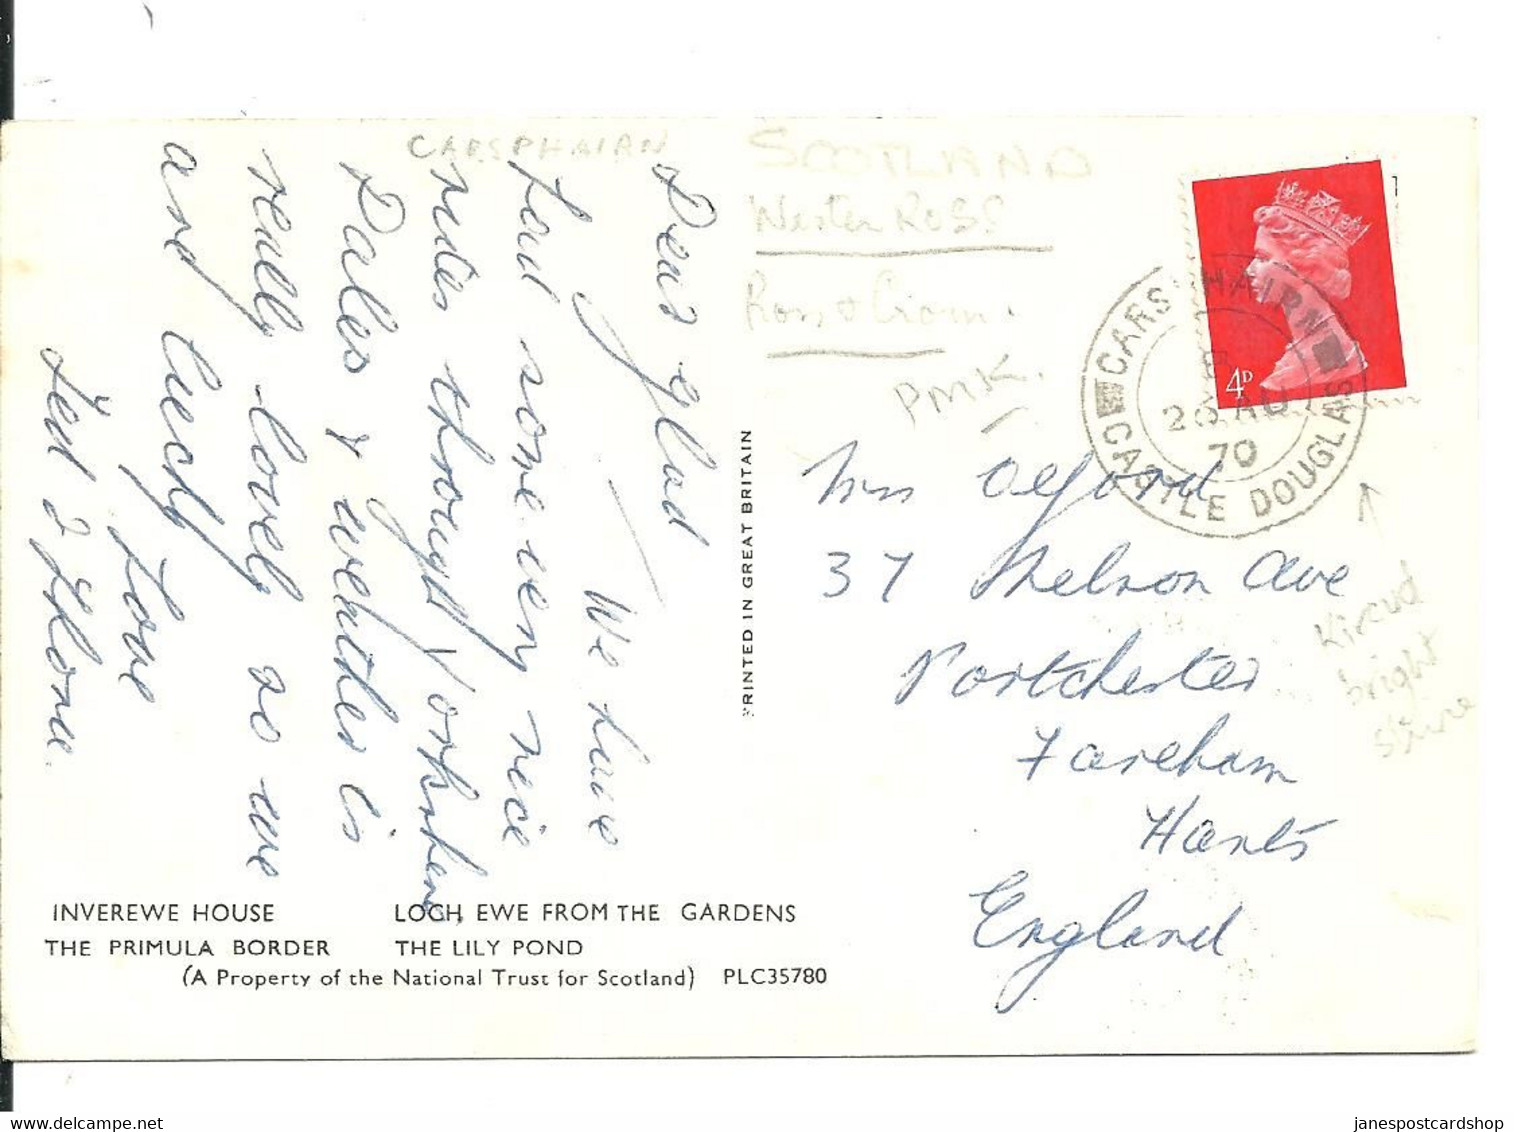 CARSPHAIRN
SCOTLAND
Wester ROSS
Ross & Crom.
PMK.
Dear Glad
We have
had some very nice
rides through Yorkshire
Dales & weather is
really lovely so we
are lucky
Love
Ted & Flone.
CARSPHAIRN
26 AU
70
CASTLE DOUGLAS
4D
Mrs Oxford
37 Nelson Ave
Portchester
Fareham
Hants
England
bright
PRINTED IN GREAT BRITAIN
INVEREWE HOUSE LOCH EWE FROM THE GARDENS
THE PRIMULA BORDER THE LILY POND
(A Property of the National Trust for Scotland) PLC35780
delcampe.net
janespostcardshop